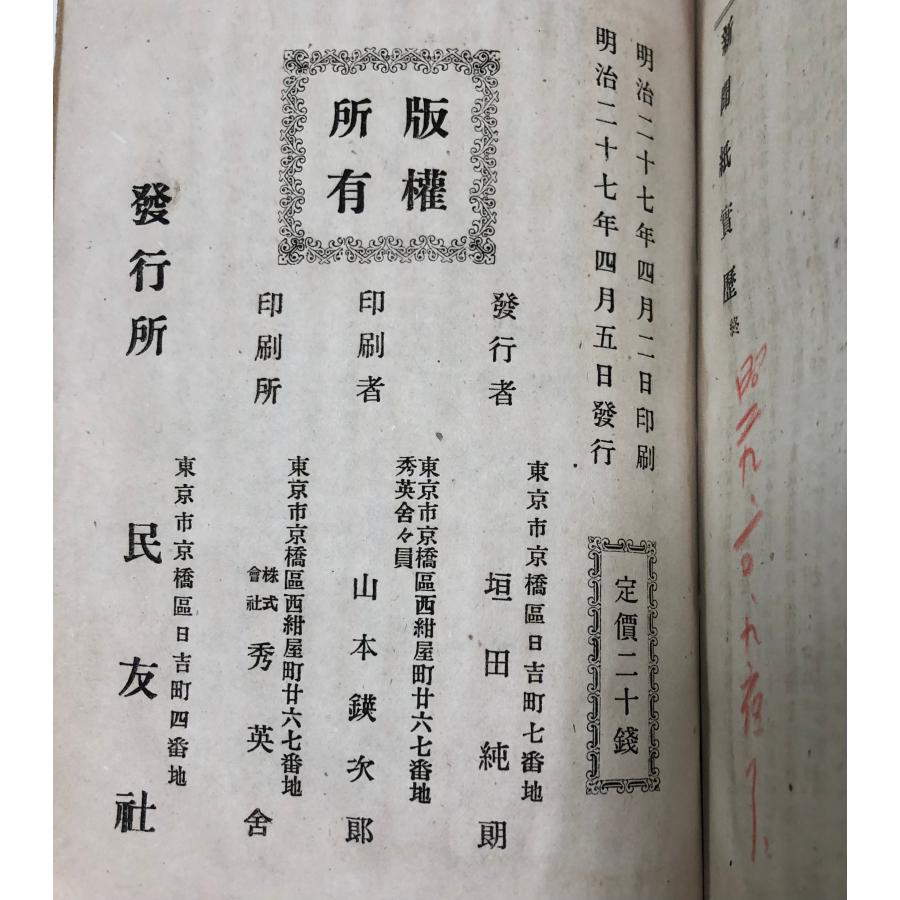 新聞紙實歷終
明治二十七年四月二日印刷
明治二十七年四月五日發行
定價二十錢
版權
所有
發行者
東京市京橋區日吉町七番地
垣田純朗
印刷者
東京市京橋區西紺屋町廿六七番地
秀英舍々員
山本鍈次郎
印刷所
東京市京橋區西紺屋町廿六七番地
株式會社秀英舍
發行所
東京市京橋區日吉町四番地
民友社